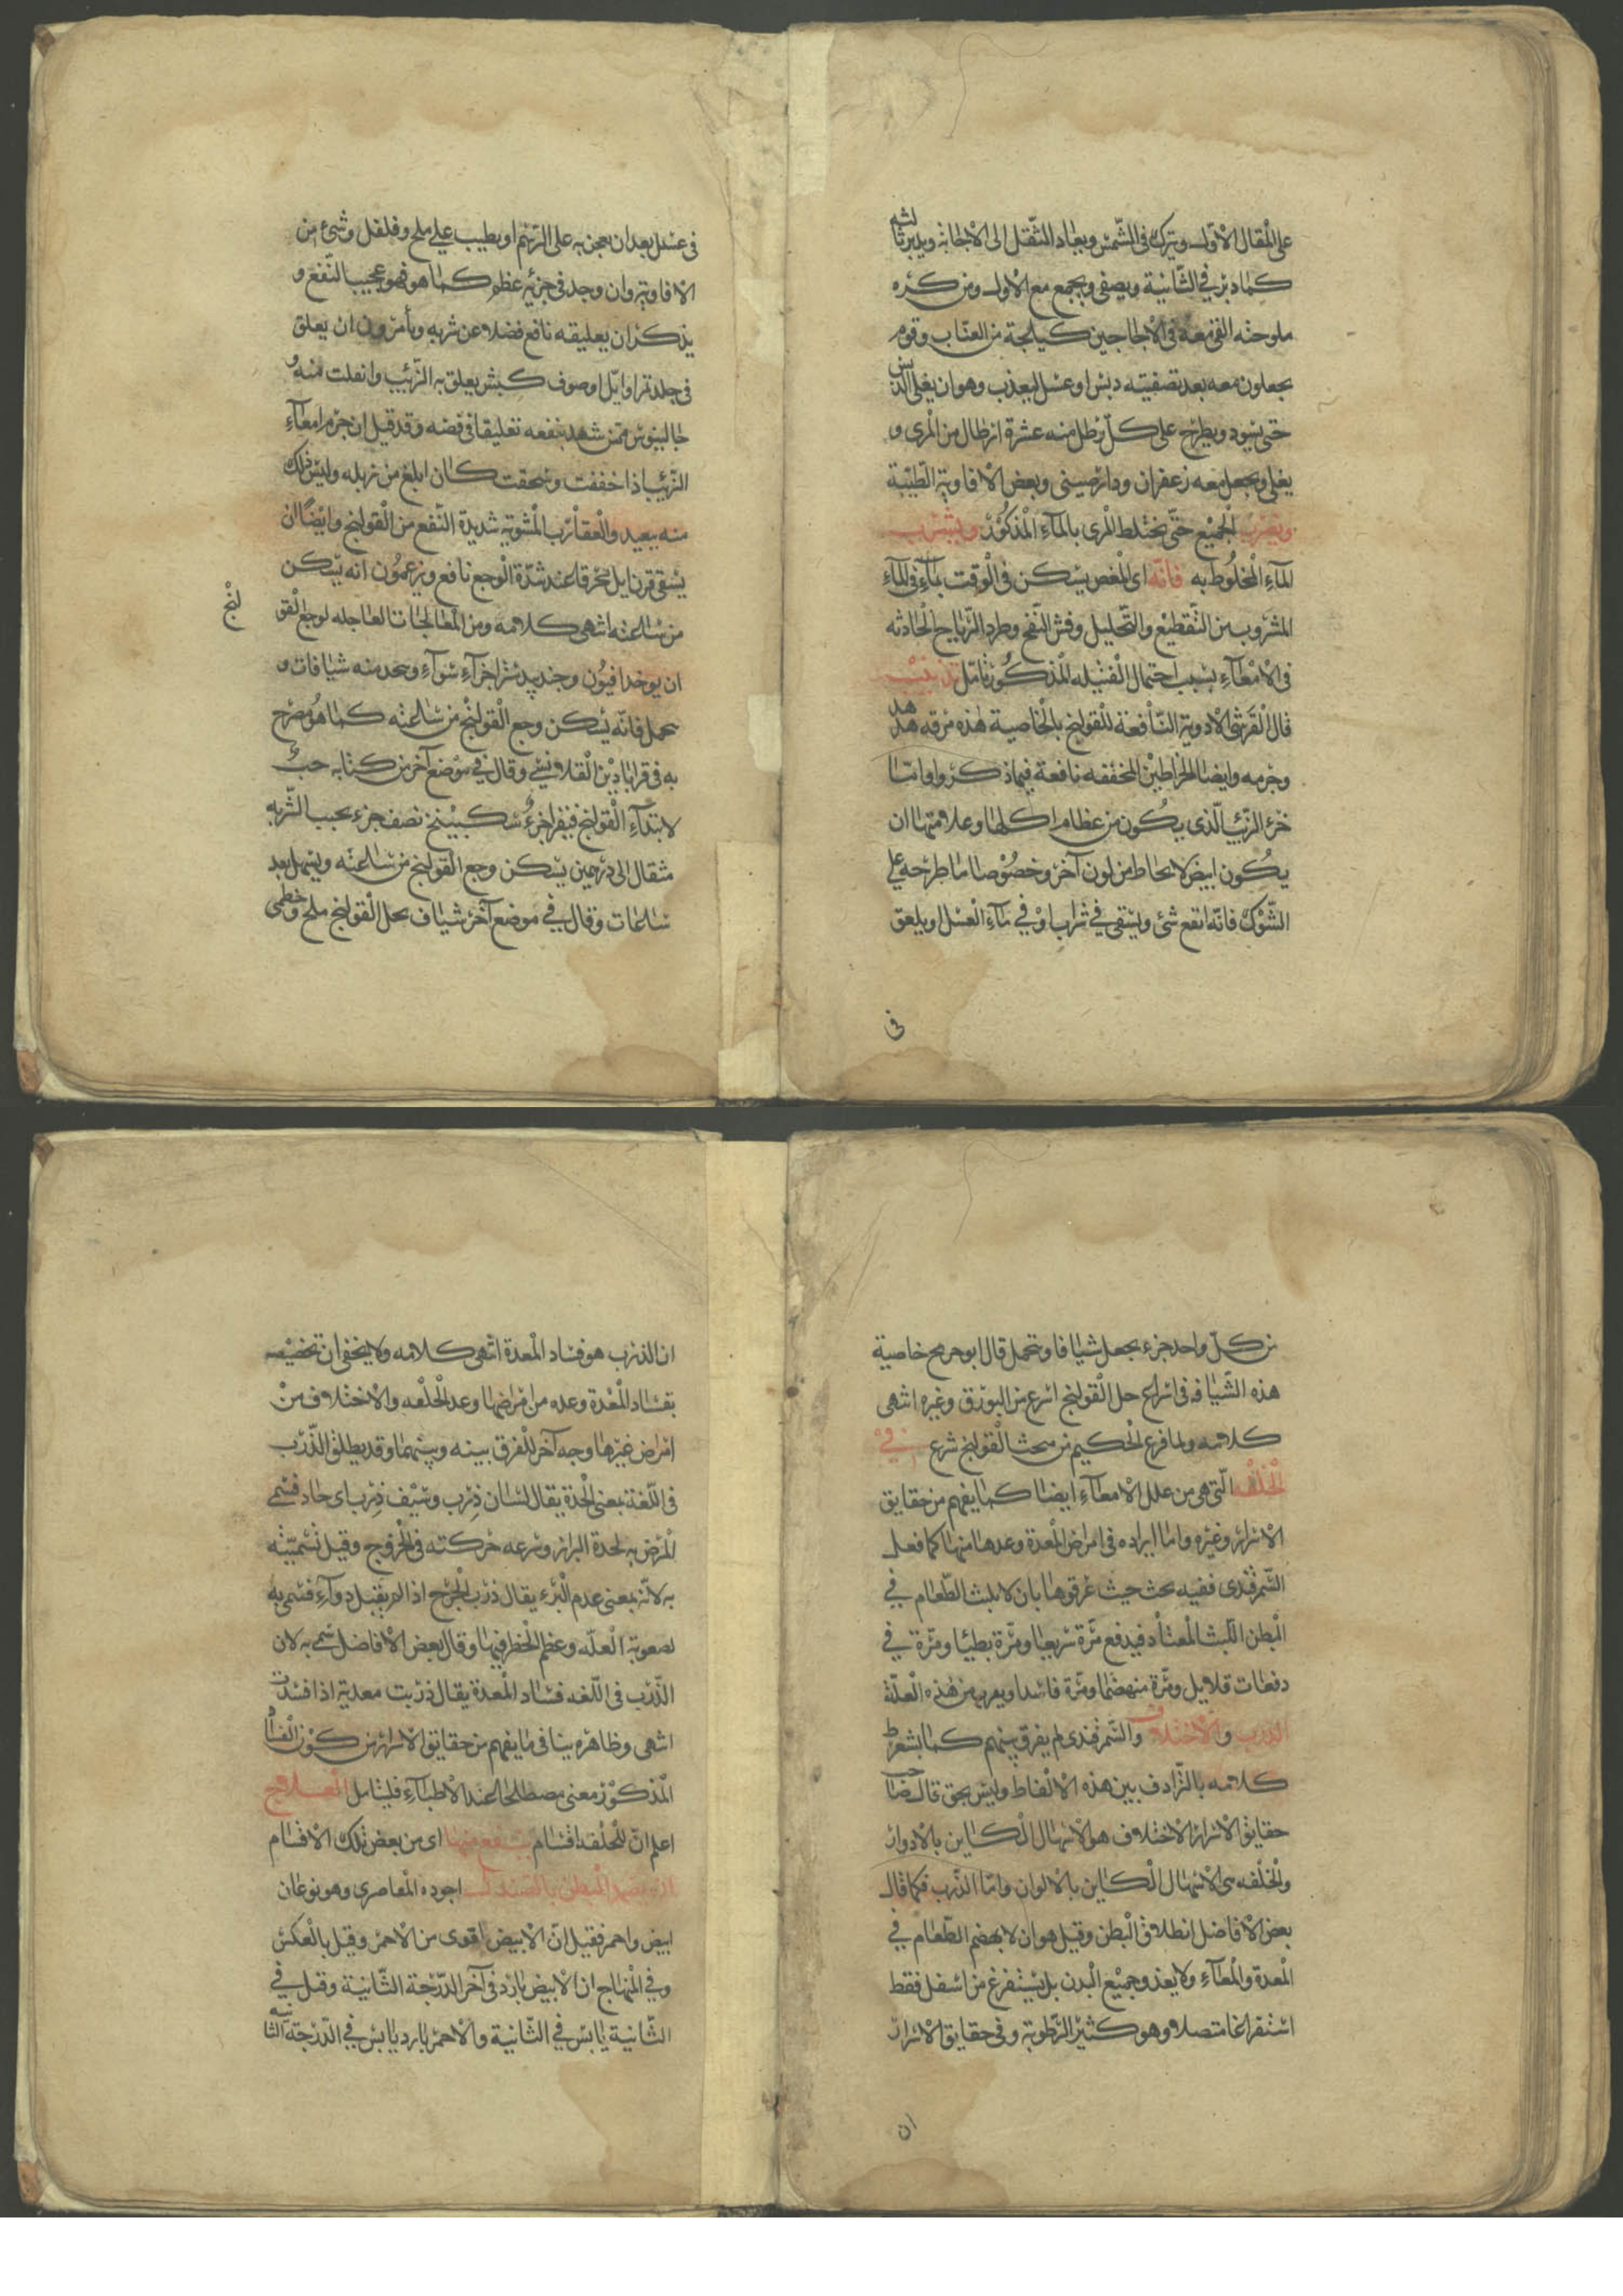 على المقال الاول ويترك فى الشمس ويعاد الثقل الى الاجانه ويدبر ثالثه
كما دبر في الثانية ويصفى ويجمع مع الاول ومن كره
ملوحته القى معه فى الاجاجين كيلجة من العناب وقوم
يجعلون معه بعد تصفيته دبس او عسل ليعذب وهو ان يغلى الدبس
حتى يسود ويطرح على كل رطل منه عشرة ارطال من المرى و
يغلى ويجعل معه زعفران ودارصينى وبعض الافاويه الطيبة
ويضرب الجميع حتى يختلط المرى بالمآء المذكور ويشرب
المآء المخلوط به فانه اى المغص يسكن فى الوقت لمآء فى المآء
المشروب من التقطيع والتحليل وفش النفخ وطرد الرياح الحادثه
فى الامعآء بسبب احتمال الفتيله المذكور تامل تذنيب
قال القرشى الادوية النافعة للقولنج بالخاصية هذه مرقه هدهد
وجرمه وايضا الخراطين المخففه نافعة فيما ذكروا واما
خرء الذئب الذى يكون من عظام اكلها وعلامتها ان
يكون ابيض لا يخاط من لون آخر وخصوصا ما طرحه على
الشوك فانه انفع شئ ويسقى في شراب او في مآء العسل او يلعق
فى
فى عسل بعد ان يعجن به على الرسم او يطيب على ملح وفلفل وشئ من
الافاويه وان وجد فى خرئه عظم كما هو فهو عجيب النفع و
يذكر ان تعليقه نافع فضلا عن شربه ويأمرون ان يعلق
فى جلد نمر او ايل او صوف كبش يعلق به الذئب وانفلت منه و
جالينوس ممن شهد بنفعه تعليقا فى فضه وقد قيل ان جرم امعآء
الذئب اذا خففت وسحقت كان ابلغ من زبله وليس ذلك
منه ببعيد والعقارب المشوية شديدة النفع من القولنج وايضا ان
يسقى قرن ايل محرقا عند شدة الوجع نافع ويزعمون انه يسكن
من ساعته انتهى كلامه ومن المعالجات العاجله لوجع القولنج
ان يوخذ افيون وجندبيدستر اجزآء سوآء ويتخذ منه شيافات و
يحمل فانه يسكن وجع القولنج من ساعته كما هو مصرح
به فى قرابادين القلانسى وقال في موضع آخر من كتابه حب
لابتدآء القولنج فيقرا جزء سكبينج نصف جزء يحبب الشربه
مثقال الى درهمين يسكن وجع القولنج من ساعته ويسهل بعد
ساعات وقال في موضع آخر شياف يحل القولنج ملح وخطمى
من كل واحد جزء يجعل شيافا ويتحمل قال ابو جريح خاصية
هذه الشيافه فى اسراع حل القولنج اسرع من البورق وغيره انتهى
كلامه ولما فرغ الحكيم من مبحث القولنج شرع فى
الخلفه التى هى من علل الامعآء ايضا كما يفهم من حقايق
الاسرار وغيره واما ايراده فى امراض المعدة وعدها منها كما فعل
السمرقندى ففيه بحث حيث عرفوها بان لا يلبث الطعام في
البطن اللبث المعتاد فيدفع مرة سريعا ومرة بطيئا ومرة في
دفعات قلايل ومرة منهضما ومرة فاسدا ويعرب من هذه العلة
الذرب والاختلاف والسمرقندى لم يفرق بينهم كما يشعر
كلامه بالترادف بين هذه الالفاظ وليس بحق قال صاحب
حقايق الاسرار الاختلاف هو الاسهال الكاين بالادوار
والخلفه هى الاسهال الكاين بالالوان واما الذرب فكما قال
بعض الافاضل انطلاق البطن وقيل هو ان لا يهضم الطعام في
المعدة والمعآء ولا يغذو جميع البدن بل يستفرغ من اسفل فقط
استفراغا متصلا وهو كثير الرطوبة وفى حقايق الاسرار
ان
ان الذرب هو فساد المعدة انتهى كلامه ولا يخفى ان تخصيصه
بفساد المعدة وعده من امراضها وعد الخلفه والاختلاف من
امراض غيرها وجه آخر للفرق بينه وبينهما وقد يطلق الذرب
فى اللغة بمعنى الحدة يقال لسان ذرب وسيف ذرب اى حاد فسمى
المرض به لحدة البراز وسرعه حركته فى الخروج وقيل تسميته
به لانه بمعنى عدم البرء يقال ذرب الجرح اذا لم يقبل دوآء فسمى به
لصعوبة العله وعظم الخطر فيها وقال بعض الافاضل سمى به لان
الذرب فى اللغه فساد المعدة يقال ذربت معدته اذا فسدت
انتهى وظاهره ينافى ما يفهم من حقايق الاسرار من كون الفساد
المذكور معنى مصطلحا عند الاطبآء فليتامل العلاج
اعلم ان للخلفه اقسام ينفع منها اى من بعض تلك الاقسام
ان يضمد البطن بالصندل اجوده المقاصرى وهو نوعان
ابيض واحمر فقيل ان الابيض اقوى من الاحمر وقيل بالعكس
وفي المنهاج ان الابيض بارد فى آخر الدرجة الثانية وقيل في
الثانية يابس في الثانية والاحمر بارد يابس في الدرجة الثانيه